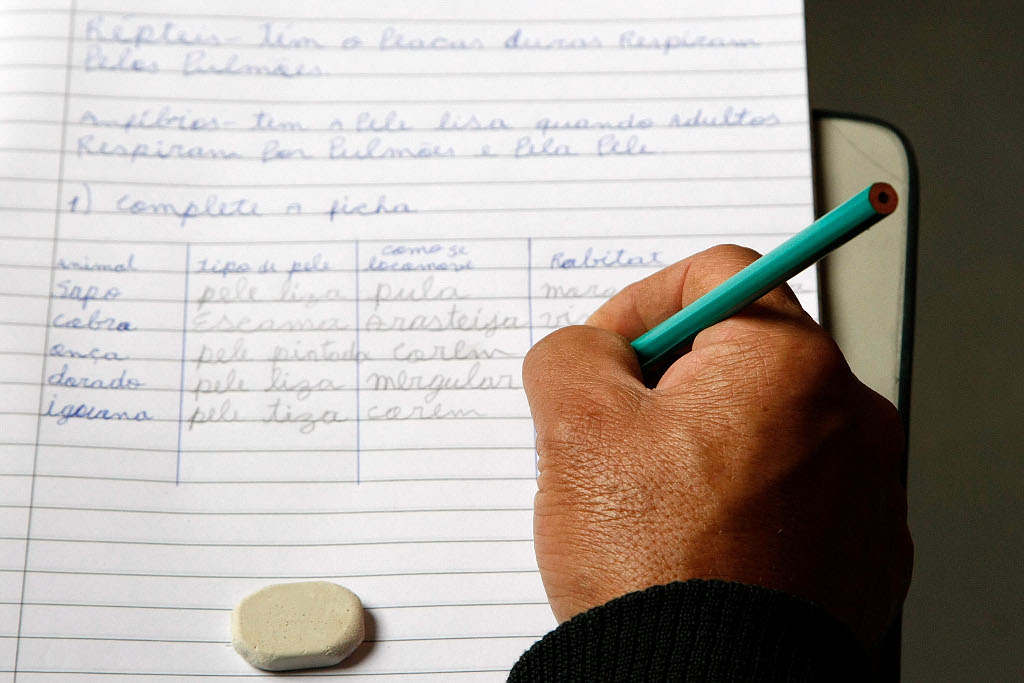 Répteis - têm o Placas duras Respiram
Pelos Pulmões.
Anfíbios - tem a Pele lisa quando Adultos
Respiram Por Pulmões e Pela Pele
1) complete a ficha
animal tipo de pele como se locomove Habitat
Sapo pele liza pula
cobra Escama Arasteija
onça pele pintada corem
dorado pele liza mergular
igouana pele tiza corem